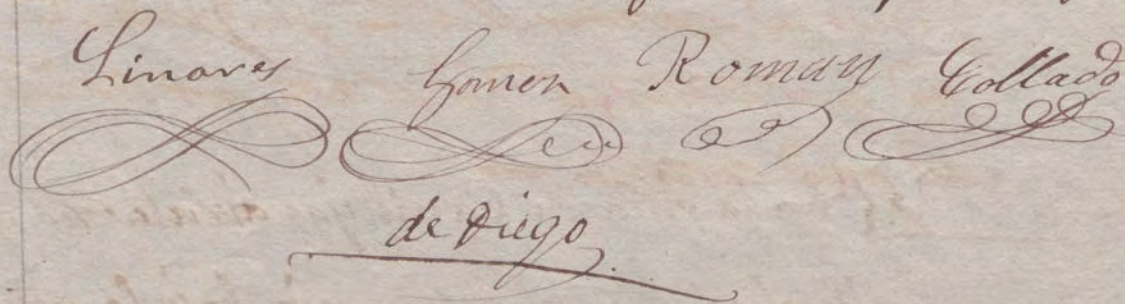 Linares Gomez Roman Collado
de Diego